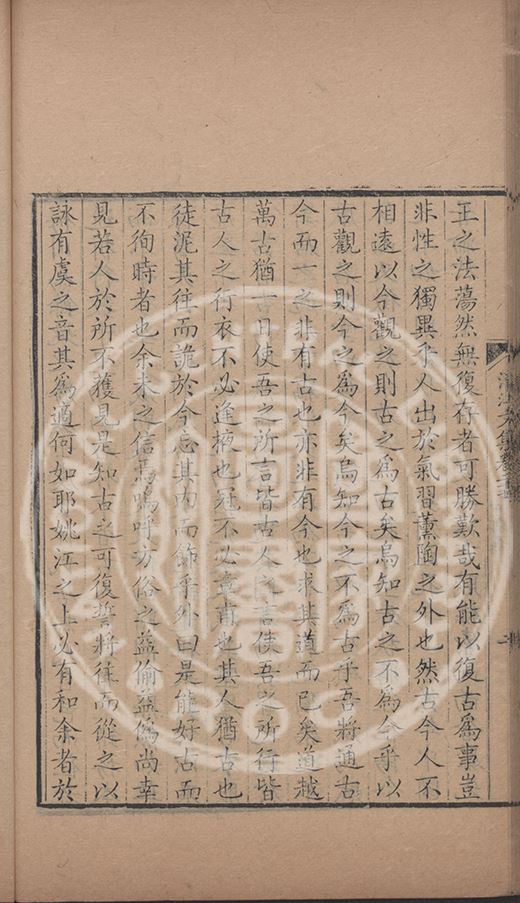 王之法蕩然無復存者可勝歎哉有能以復古爲事豈
非性之獨異乎人出於氣習薰陶之外也然古今人不
相遠以今觀之則古之爲古矣烏知古之不爲今乎以
古觀之則今之爲今矣烏知今之不爲古乎吾將通古
今而一之非有古也亦非有今也求其道而已矣道越
萬古猶一日使吾之所言皆古人之言使吾之所行皆
古人之行衣不必逢掖也冠不必章甫也其人猶古也
徒泥其往而詭於今忘其內而飾乎外曰是能好古而
不徇時者也余未之信焉嗚呼方俗之益偷益僞尚幸
見若人於所不獲見是知古之可復誓將往而從之以
詠有虞之音其爲適何如耶姚江之上必有和余者於